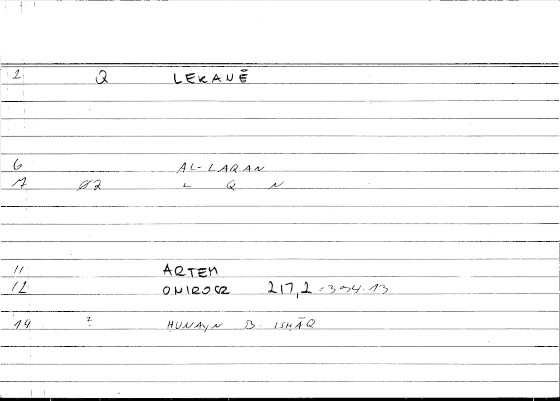 2 Q LEKANĒ
6 AL-LAQAN
7 02 L Q N
11 ARTEM
12 ONIROCR 217,2 = 394.13
14 ? HUNAYN B. ISHĀQ